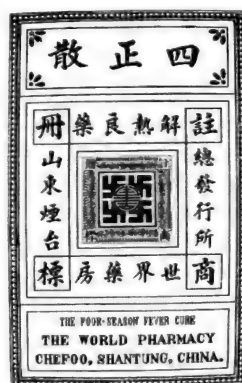 四正散
註冊商標
解熱良藥
總發行所
山東煙台
世界藥房
THE FOUR-SEASON FEVER CURE
THE WORLD PHARMACY
CHEFOO, SHANTUNG, CHINA.